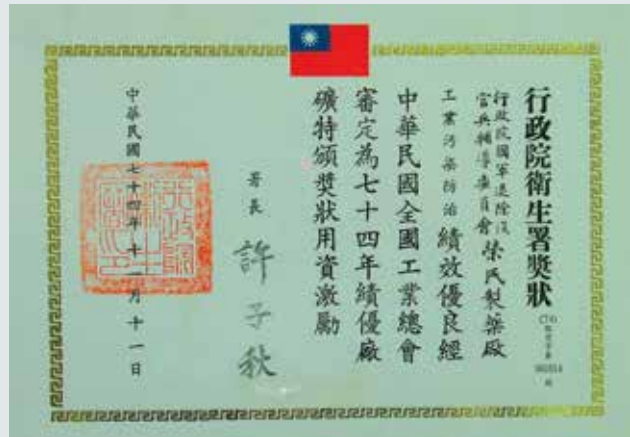 行政院衛生署獎狀
(74)
行政院國軍退除役
官兵輔導委員會 榮民製藥廠
工業污染防治 績效優良經
中華民國全國工業總會
審定為七十四年績優廠
礦特頒獎狀用資激勵
署長 許子秋
中華民國七十四年十一月十一日